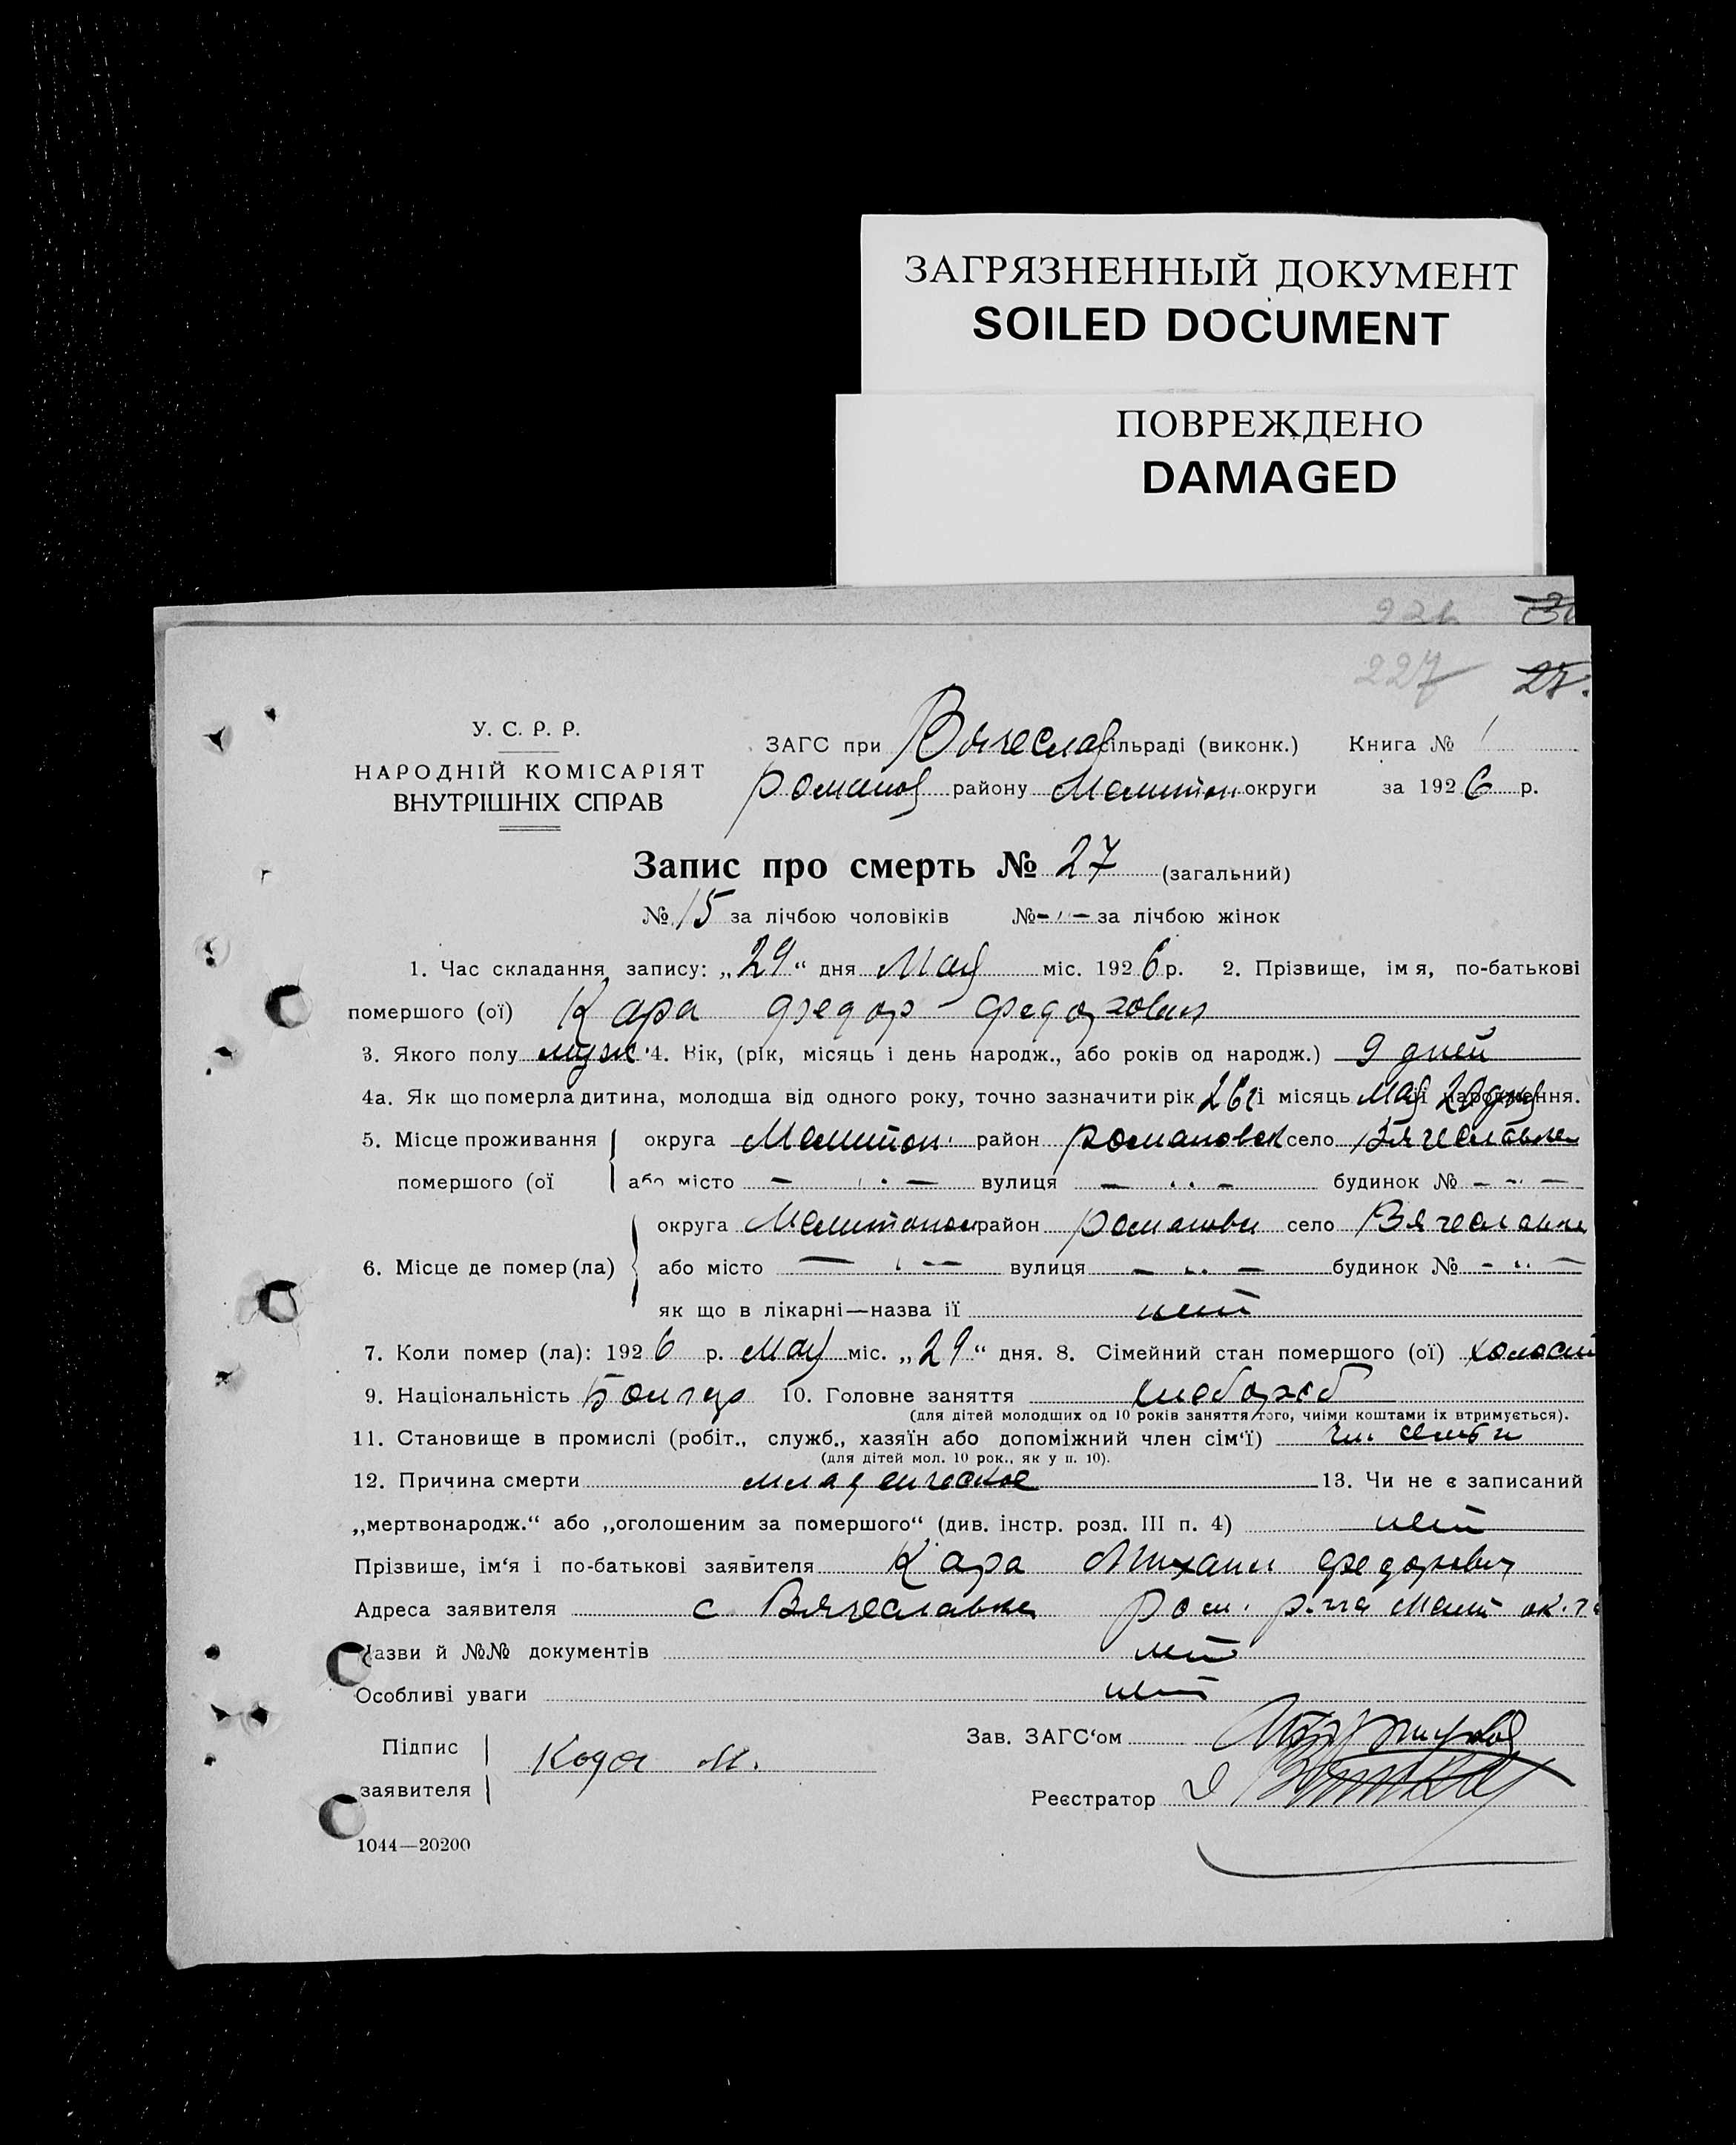 ЗАГРЯЗНЕННЫЙ ДОКУМЕНТ
SOILED DOCUMENT
ПОВРЕЖДЕНО
DAMAGED
227 27.
У. С. Р. Р.
НАРОДНІЙ КОМІСАРІЯТ
ВНУТРІШНІХ СПРАВ
ЗАГС при Вячеслав сільраді (виконк.) Книга № 1
Романов району Мелитоп округи за 1926 р.
Запис про смерть № 27 (загальний)
№ 15 за лічбою чоловіків № - " - за лічбою жінок
1. Час складання запису: „29“ дня Мая міс. 1926 р. 2. Прізвище, ім я, по-батькові
помершого (ої) Кара Федор Федорович
3. Якого полу муж 4. Вік, (рік, місяць і день народж., або років од народж.) 9 дней
4а. Як що померла дитина, молодша від одного року, точно зазначити рік 26 г і місяць Мая 20 дня народження.
5. Місце проживання округа Мелитоп. район Романовск село Вячеславка
помершого (ої або місто - " - вулиця - " - будинок № - " -
округа Мелитопол район Романовск село Вячеславка
6. Місце де помер (ла) або місто - " - вулиця - " - будинок № - " -
як що в лікарні—назва ії нет
7. Коли помер (ла): 1926 р. Мая міс. „29“ дня. 8. Сімейний стан помершого (ої) холост
9. Національність Болгар 10. Головне заняття хлебороб
(для дітей молодших од 10 років заняття того, чиіми коштами іх втримується).
11. Становище в промислі (робіт., служб., хазяїн або допоміжний член сім‘ї) чл. семьи
(для дітей мол. 10 рок., як у п. 10).
12. Причина смерти младенческое 13. Чи не є записаний
„мертвонародж.“ або „оголошеним за помершого“ (див. інстр. розд. III п. 4) нет
Прізвише, ім‘я і по-батькові заявителя Кара Михаил Федорович
Адреса заявителя с Вячеславка Ром. р-на Мелит ок.
Назви й №№ документів нет
Особливі уваги нет
Підпис Зав. ЗАГС‘ом
заявителя М.
Реєстратор
1044—20200